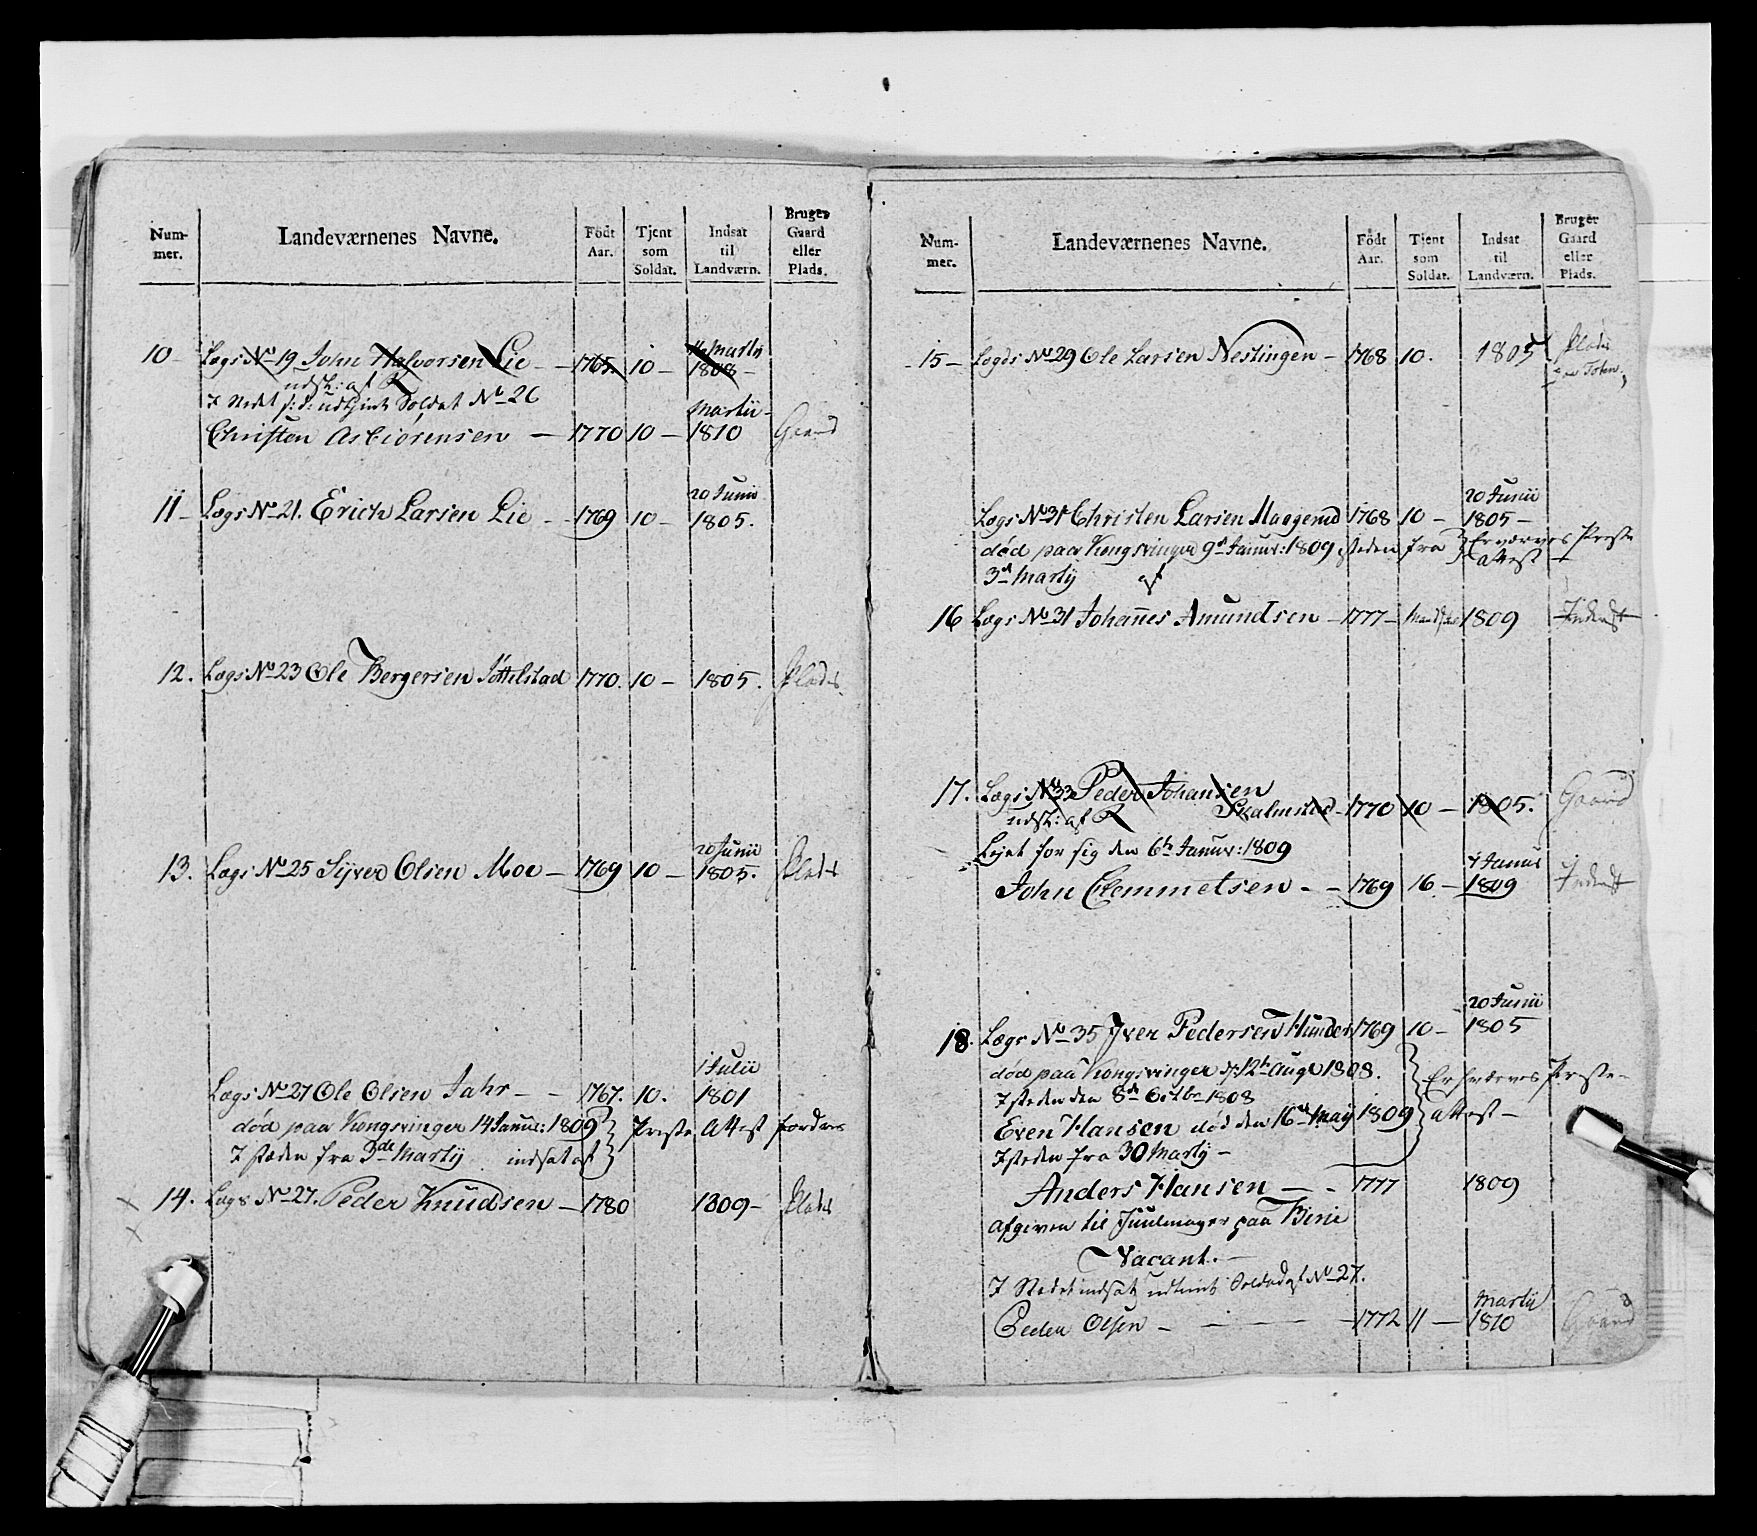 Num-
mer.
Landeværnenes Navne.
Födt
Aar.
Tjent
som
Soldat.
Indsat
til
Landværn.
Bruger
Gaard
eller
Plads.
10 - Lægs No 19 John Halvorsen Lie - - 1765. 10 - Martii 1808 -
udsk: af R
I stedet udtient Soldat No 26
Christen Asbiörensen - 1770 10 - Martii 1810 Gaard
11 - Lægs No 21. Erich Larsen Lie - - 1769 10 - 20 Junii 1805.
12. Lægs No 23 Ole Bergersen Töttelstad 1770. 10 - 1805. Plads
13. Lægs No 25 Syver Olsen Moe - 1769 10 - 20 Junii 1805. Plads
Lægs No 27 Ole Olsen Jahr - - 1767. 10. 1 Julii 1801
död paa Kongsvinger 14 Janur: 1809 } Præste Attest fordres
I stæden fra 3de Martij indsat af
14. Lægs No 27. Peder Knudsen - 1780 1809 - Plads
Num-
mer.
Landeværnenes Navne.
Födt
Aar.
Tjent
som
Soldat.
Indsat
til
Landværn.
Bruger
Gaard
eller
Plads.
15 - Lægds No 29 Ole Larsen Nestingen - 1768 10. 1805 Plads
paa Toten
Lægs No 31 Christen Larsen Maagerud 1768 10 - 20 Junii 1805 -
död paa Kongsvinger 9de Janur: 1809 steden fra } Præste
3de Martij af attest
16 Lægs No 31 Johannes Amundsen - 1777 - 1809 Inderst
17. Lægs No 33 Peder Johansen
Skalmstad - 1770 10 - 1805. Gaard
udsk: af R
Lejet for sig den 6te Janur: 1809
John Clemmetsen - - 1769 16 - Janur 1809 Inderst
18. Lægs No 35 Iver Pedersen Hunder 1769 10 - 20 Junii 1805
död paa Kongsvinger d: 12te Augt 1808. } Præste-
I steden den 8de Octbr 1808
Even Hansen död den 16de May 1809 attest -
I steden fra 30 Martij -
Anders Hansen - - 1777 1809
afgiven til Juulmager paa Birie
Vacant. -
I Stedet indsat udtient Soldat af No 27.
Peder Olsen - - - - 1772 11 - Martii 1810 Gaard